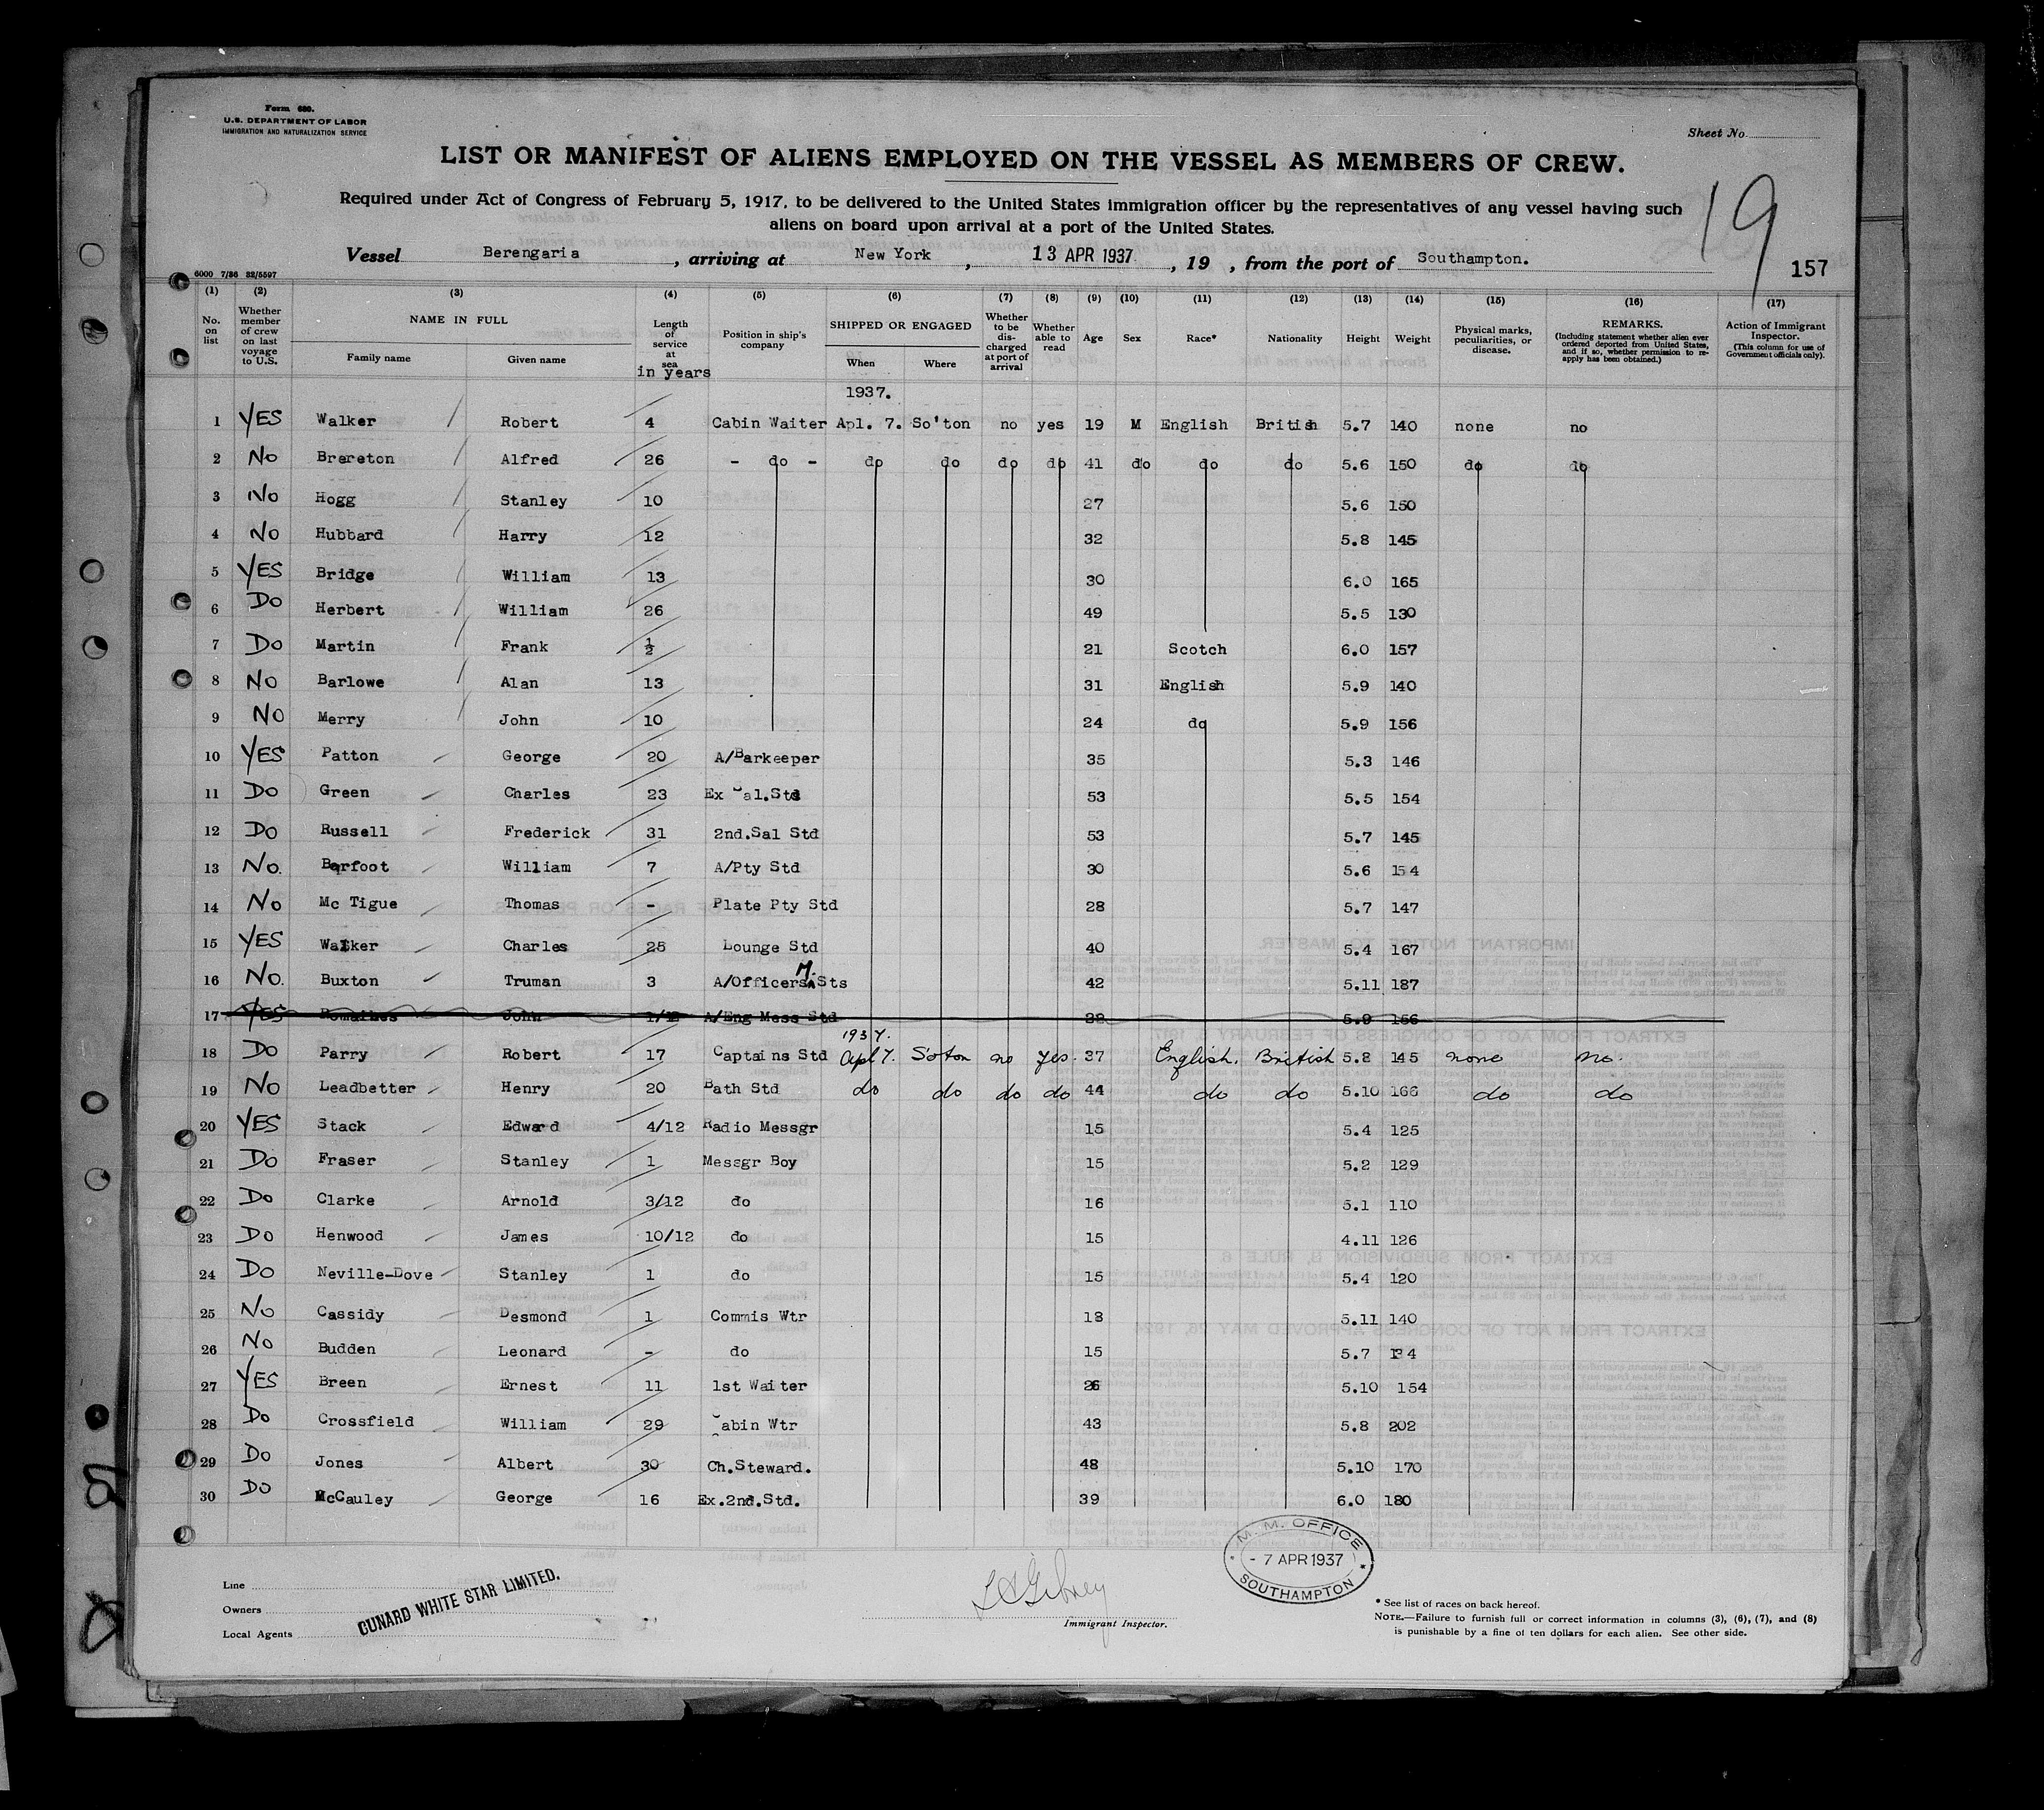 Form 680.
U.S. DEPARTMENT OF LABOR
IMMIGRATION AND NATURALIZATION SERVICE
Sheet No.
LIST OR MANIFEST OF ALIENS EMPLOYED ON THE VESSEL AS MEMBERS OF CREW.
Required under Act of Congress of February 5, 1917, to be delivered to the United States immigration officer by the representatives of any vessel having such
aliens on board upon arrival at a port of the United States.
19
Vessel Berengaria, arriving at New York, 13 APR 1937, 19 , from the port of Southampton.
157
6000 7/36 32/5597
(1) (2) (3) (4) (5) (6) (7) (8) (9) (10) (11) (12) (13) (14) (15) (16) (17)
No. on list
Whether member of crew on last voyage to U.S.
NAME IN FULL
Family name
Given name
Length of service at sea
in years
Position in ship's company
SHIPPED OR ENGAGED
When
Where
Whether to be discharged at port of arrival
Whether able to read
Age
Sex
Race*
Nationality
Height
Weight
Physical marks, peculiarities, or disease.
REMARKS.
(Including statement whether alien ever ordered deported from United States, and if so, whether permission to reapply has been obtained.)
Action of Immigrant Inspector.
(This column for use of Government officials only).
1937.
1 YES Walker Robert 4 Cabin Waiter Apl. 7. So'ton no yes 19 M English British 5.7 140 none no
2 No Brereton Alfred 26 - do - do do do do 41 do do do 5.6 150 do do
3 No Hogg Stanley 10 27 5.6 150
4 No Hubbard Harry 12 32 5.8 145
5 YES Bridge William 13 30 6.0 165
6 Do Herbert William 26 49 5.5 130
7 Do Martin Frank ½ 21 Scotch 6.0 157
8 No Barlowe Alan 13 31 English 5.9 140
9 No Merry John 10 24 do 5.9 156
10 YES Patton George 20 A/Barkeeper 35 5.3 146
11 Do Green Charles 23 Ex Sal.Std 53 5.5 154
12 Do Russell Frederick 31 2nd.Sal Std 53 5.7 145
13 No. Barfoot William 7 A/Pty Std 30 5.6 154
14 No Mc Tigue Thomas - Plate Pty Std 28 5.7 147
15 YES Walker Charles 25 Lounge Std 40 5.4 167
16 No. Buxton Truman 3 A/Officers M. Sts 42 5.11 187
17 YES John A/Eng Mess Std 5.9 156
1937.
18 Do Parry Robert 17 Captains Std Apl 7. S'oton no yes. 37 English. British 5.8 145 none no.
19 No Leadbetter Henry 20 Bath Std do do do do 44 do do 5.10 166 do do
20 YES Stack Edward 4/12 Radio Messgr 15 5.4 125
21 Do Fraser Stanley 1 Messgr Boy 15 5.2 129
22 Do Clarke Arnold 3/12 do 16 5.1 110
23 Do Henwood James 10/12 do 15 4.11 126
24 Do Neville-Dove Stanley 1 do 15 5.4 120
25 No Cassidy Desmond 1 Commis Wtr 18 5.11 140
26 No Budden Leonard - do 15 5.7
27 YES Breen Ernest 11 1st Waiter 26 5.10 154
28 Do Crossfield William 29 Cabin Wtr 43 5.8 202
29 Do Jones Albert 30 Ch.Steward. 48 5.10 170
30 Do McCauley George 16 Ex.2nd.Std. 39 6.0 180
M. M. OFFICE
- 7 APR 1937
SOUTHAMPTON
Line
Owners
Local Agents
CUNARD WHITE STAR LIMITED.
Immigrant Inspector.
* See list of races on back hereof.
NOTE.—Failure to furnish full or correct information in columns (3), (6), (7), and (8)
is punishable by a fine of ten dollars for each alien. See other side.